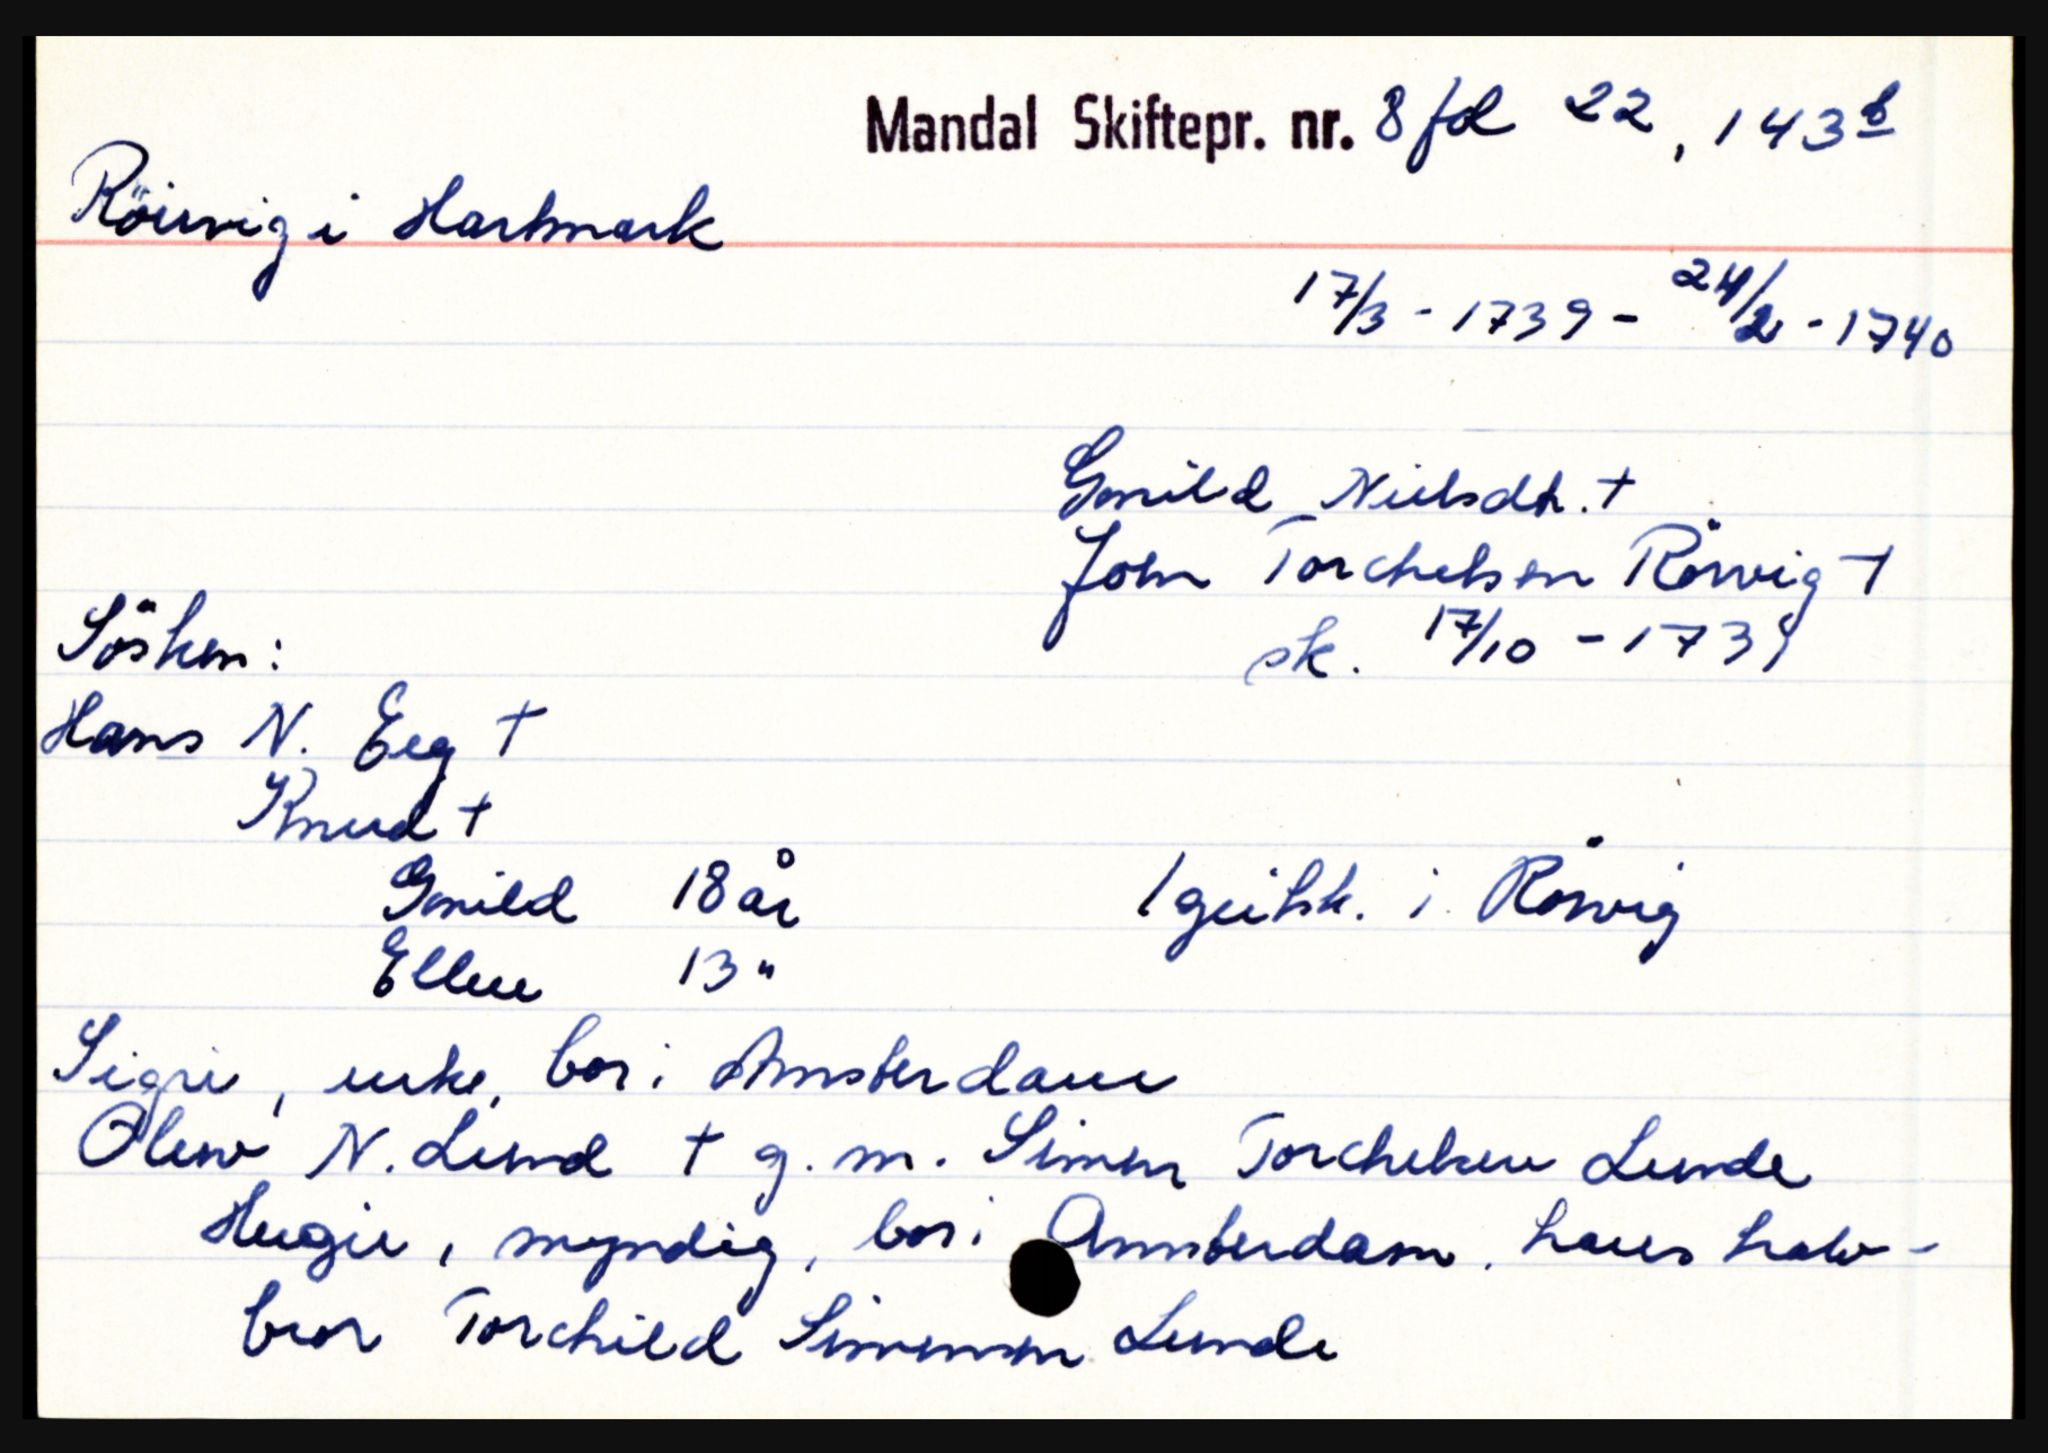 Mandal Skiftepr. nr. 8 fol 22, 143 b
Röirvig i Hartmark
17/3 - 1739 - 24/2 - 1740
Gunild Nielsdtr. †
John Torchelsen Rörvig †
sk. 17/10 - 1739
Sösken:
Hans N. Eeg †
Knud †
Gunild 18 år
1 geitsk. i Rörvig
Ellen 13 "
Sigri, enke, bor i Amsterdam
Olew N. Lund † g. m. Simen Torchelsen Lunde
Hugie, myndig, bor i Amsterdam, hans halv-
bror Torchild Simensen Lunde